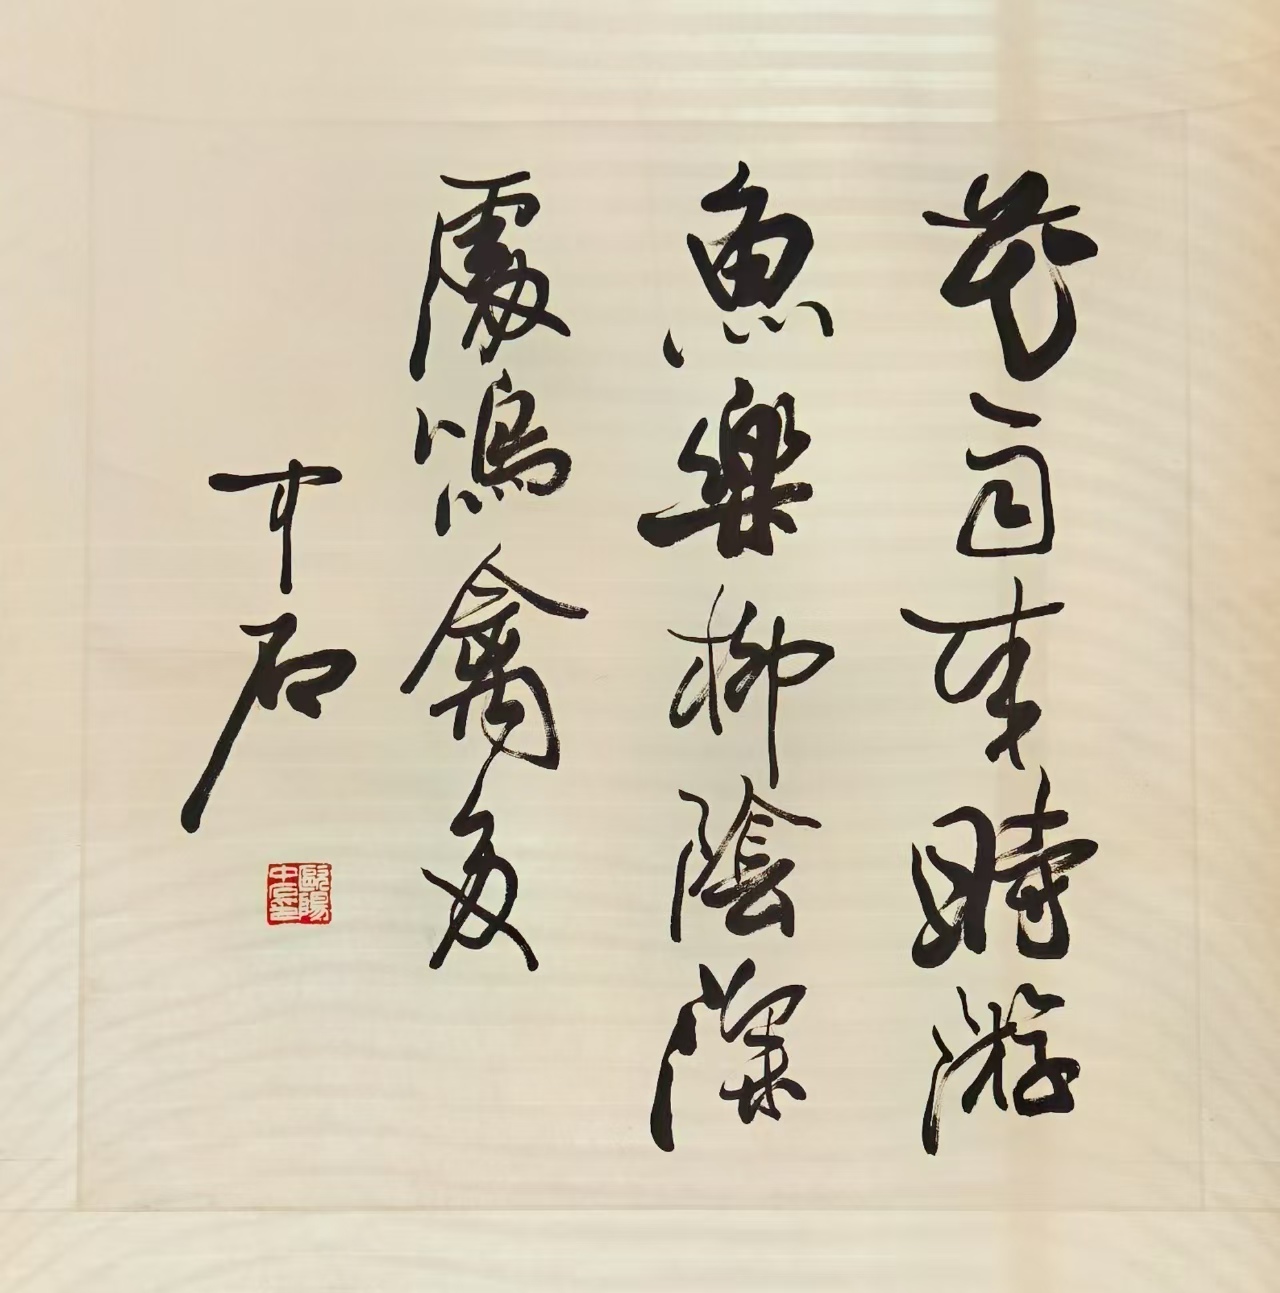 花来時游
魚樂柳陰深
處鳴禽多
中石
歐陽中石印